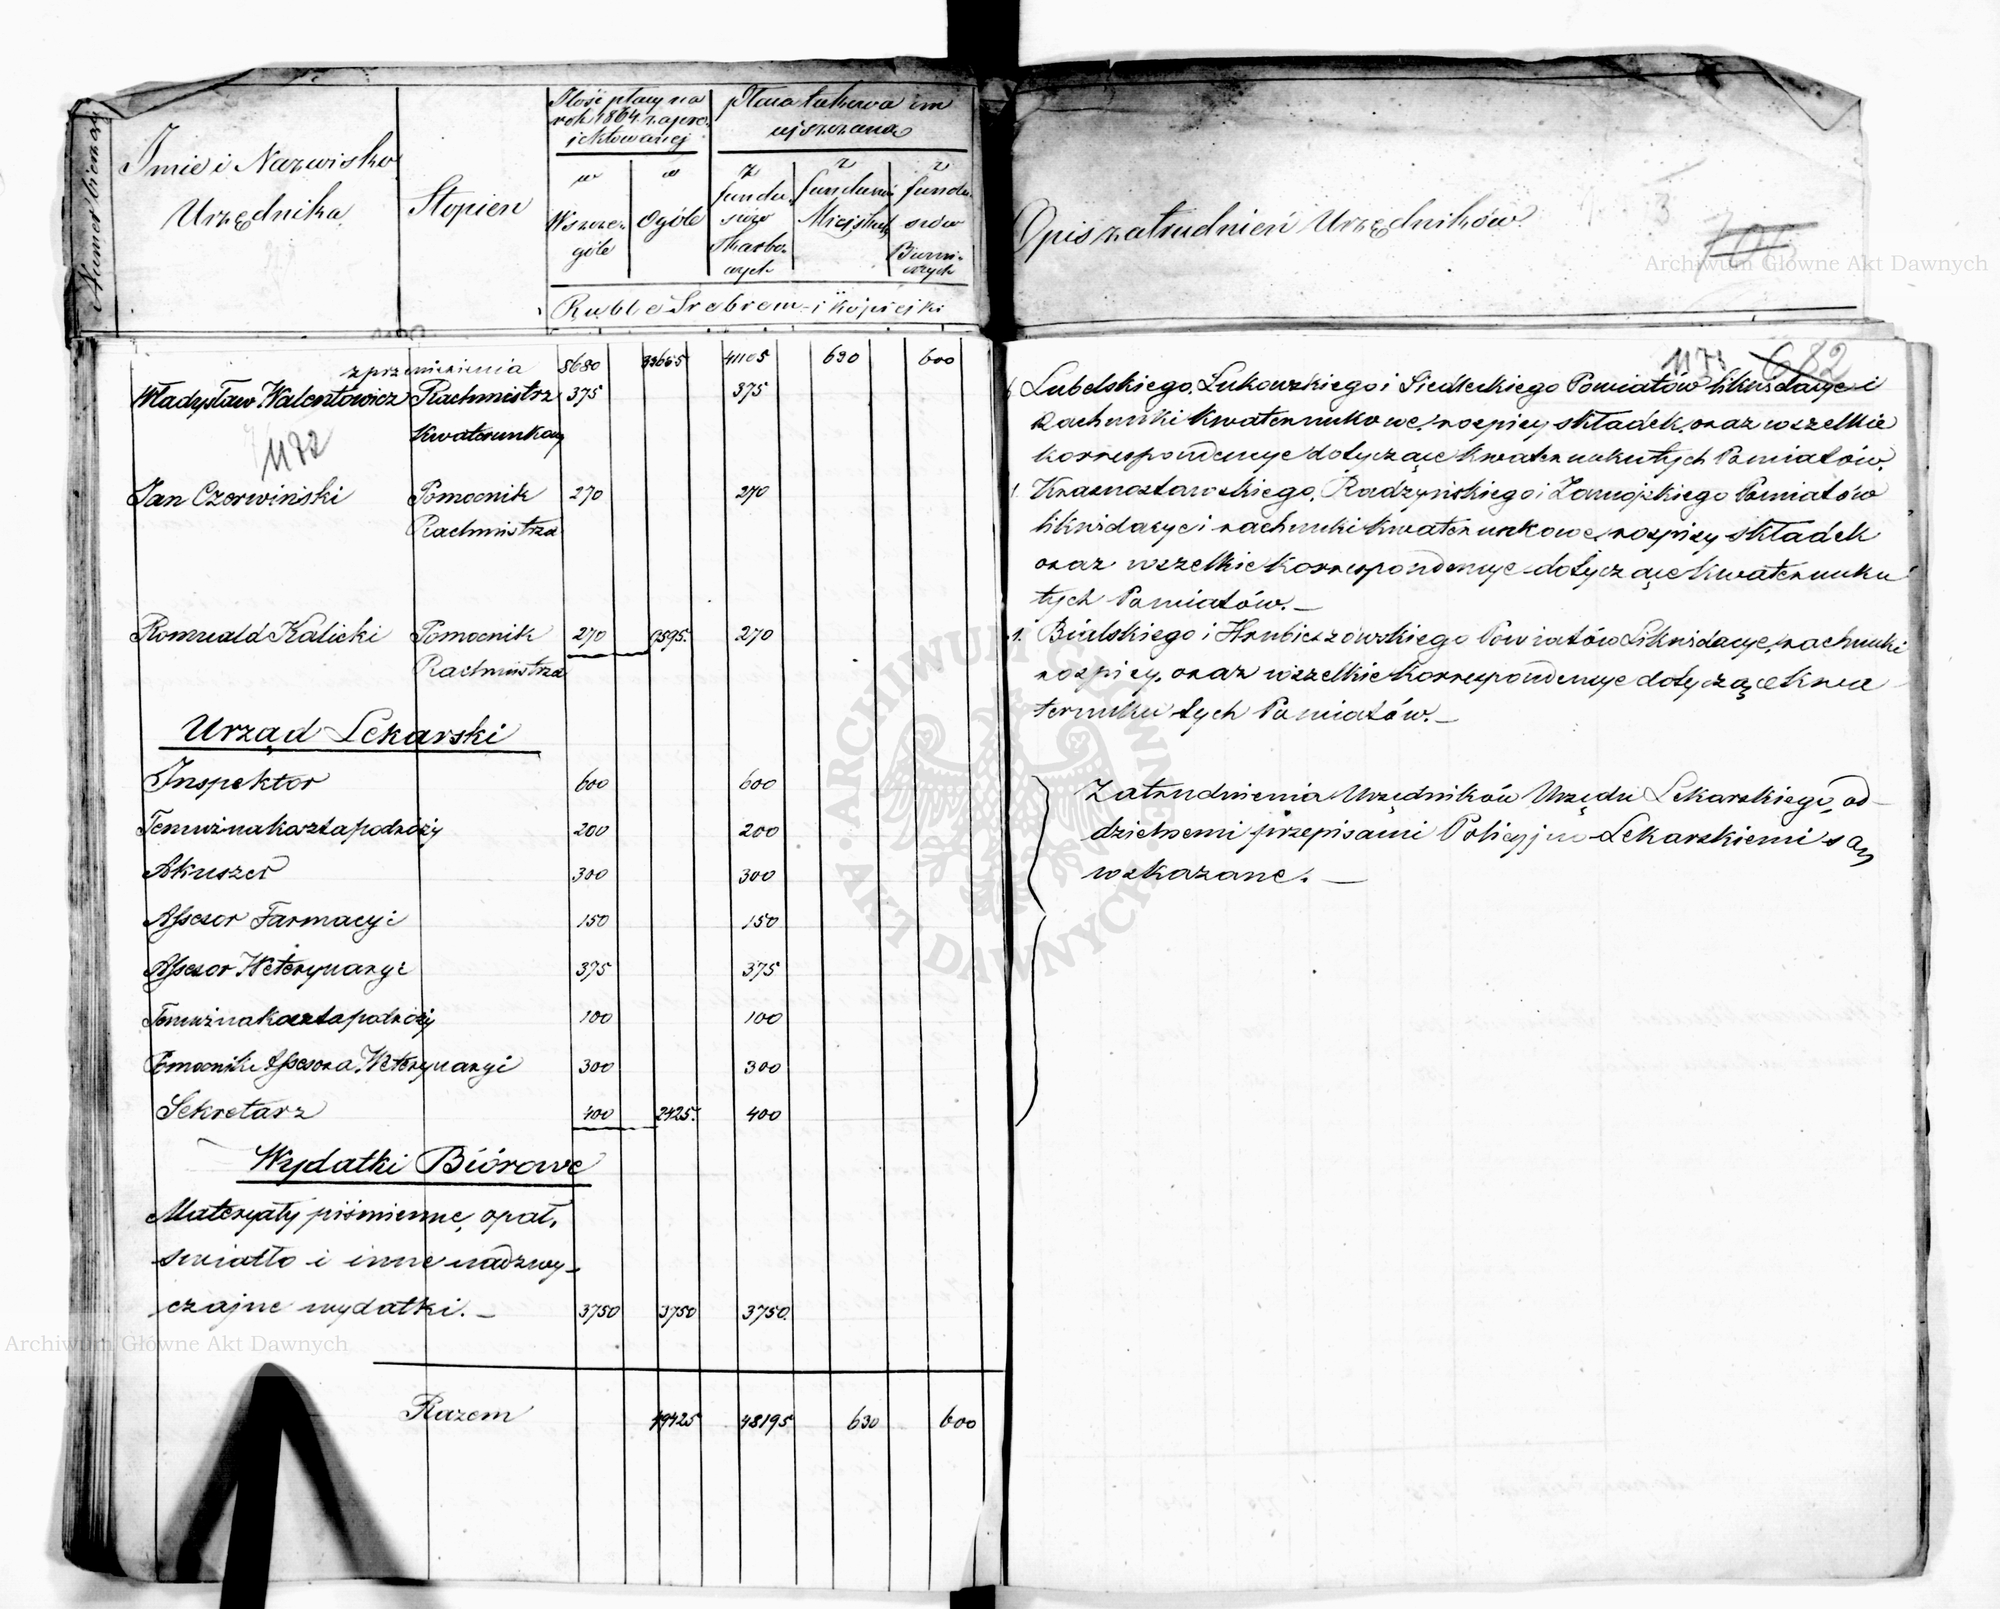 Numer bieżący
Imie i Nazwisko
Urzędnika
Stopień
Ilość płacy na
rok 1864 zapro-
jektowanej
w
Wszcze-
góle
w
Ogóle
Płaca takowa im
wyznaczona
z
fundu-
szów
Skarbo-
wych
z
funduszów
Miejskich
z
fundu-
szów
Rubla Srebrem i kopiejki
Opis zatrudnień Urzędników
705
Archiwum Główne Akt Dawnych
z przeniesienia 8680 39665 41105 630 600
Władysław Walentowicz Rachmistrz 375 375
Kwaterunkowy
1172
Jan Czerwiński Pomocnik 270 270
Rachmistrza
Romuald Kalicki Pomocnik 270 9595. 270
Rachmistrza
Urząd Lekarski
Inspektor 600 600
Temuż na koszta podróży 200 200
Akuszer 300 300
Assesor Farmacyi 150 150
Assesor Weterynaryi 375 375
Temuż na koszta podróży 100 100
Pomocnik Assesora Weterynaryi 300 300
Sekretarz 400 2425. 400
Wydatki Biórowe
Materyały piśmienne, opał,
swiatło i inne nadzwy-
czajne wydatki. 3750 3750 3750.
Archiwum Główne Akt Dawnych
Razem 49425 48195 630 600
1173 682
Lubelskiego, Łukowskiego i Siedleckiego Powiatów likwidacye i
Rachunki kwaterunkowe, rozpisy składek, oraz wszelkie
korrespondencye dotyczące kwaterunku tych Powiatów.
Krasnostawskiego, Radzyńskiego i Zamojskiego Powiatów
likwidacye i rachunki kwaterunkowe, rozpisy składek
oraz wszelkie korrespondencye dotyczące kwaterunku
tych Powiatów.
Bialskiego i Hrubieszowskiego Powiatów Likwidacye, rachunki
rozpisy, oraz wszelkie korrespondencye dotyczące kwa
terunku tych Powiatów.
Zatrudnienia Urzędników Urzędu Lekarskiego, od-
dzielnemi przepisami Policyjno-Lekarskiemi są
wskazane.
ARCHIWUM GŁÓWNE
AKT DAWNYCH